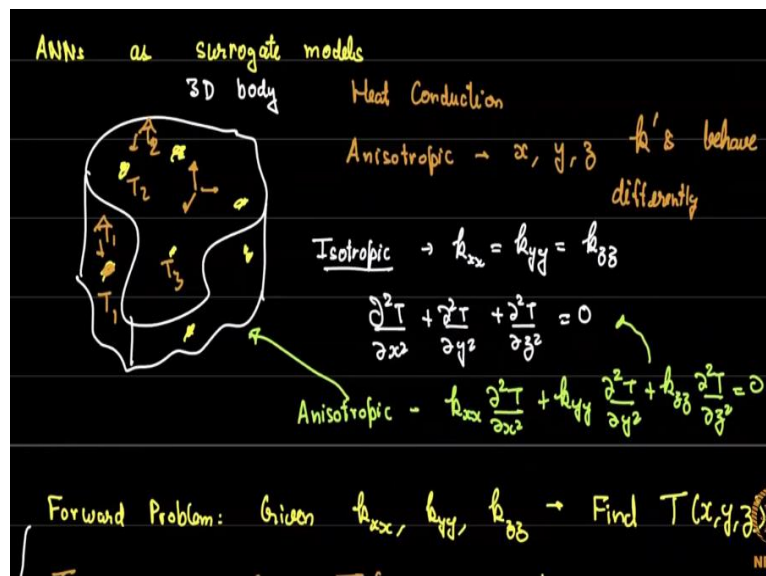 ANNs as surrogate models
3D body
Heat Conduction
Anisotropic - x, y, z k's behave
differently
T2
T2
T1
T3
T1
Isotropic → kxx = kyy = kzz
∂²T/∂x² + ∂²T/∂y² + ∂²T/∂z² = 0
Anisotropic - kxx ∂²T/∂x² + kyy ∂²T/∂y² + kzz ∂²T/∂z² = 0
Forward Problem: Given kxx, kyy, kzz → Find T(x,y,z)